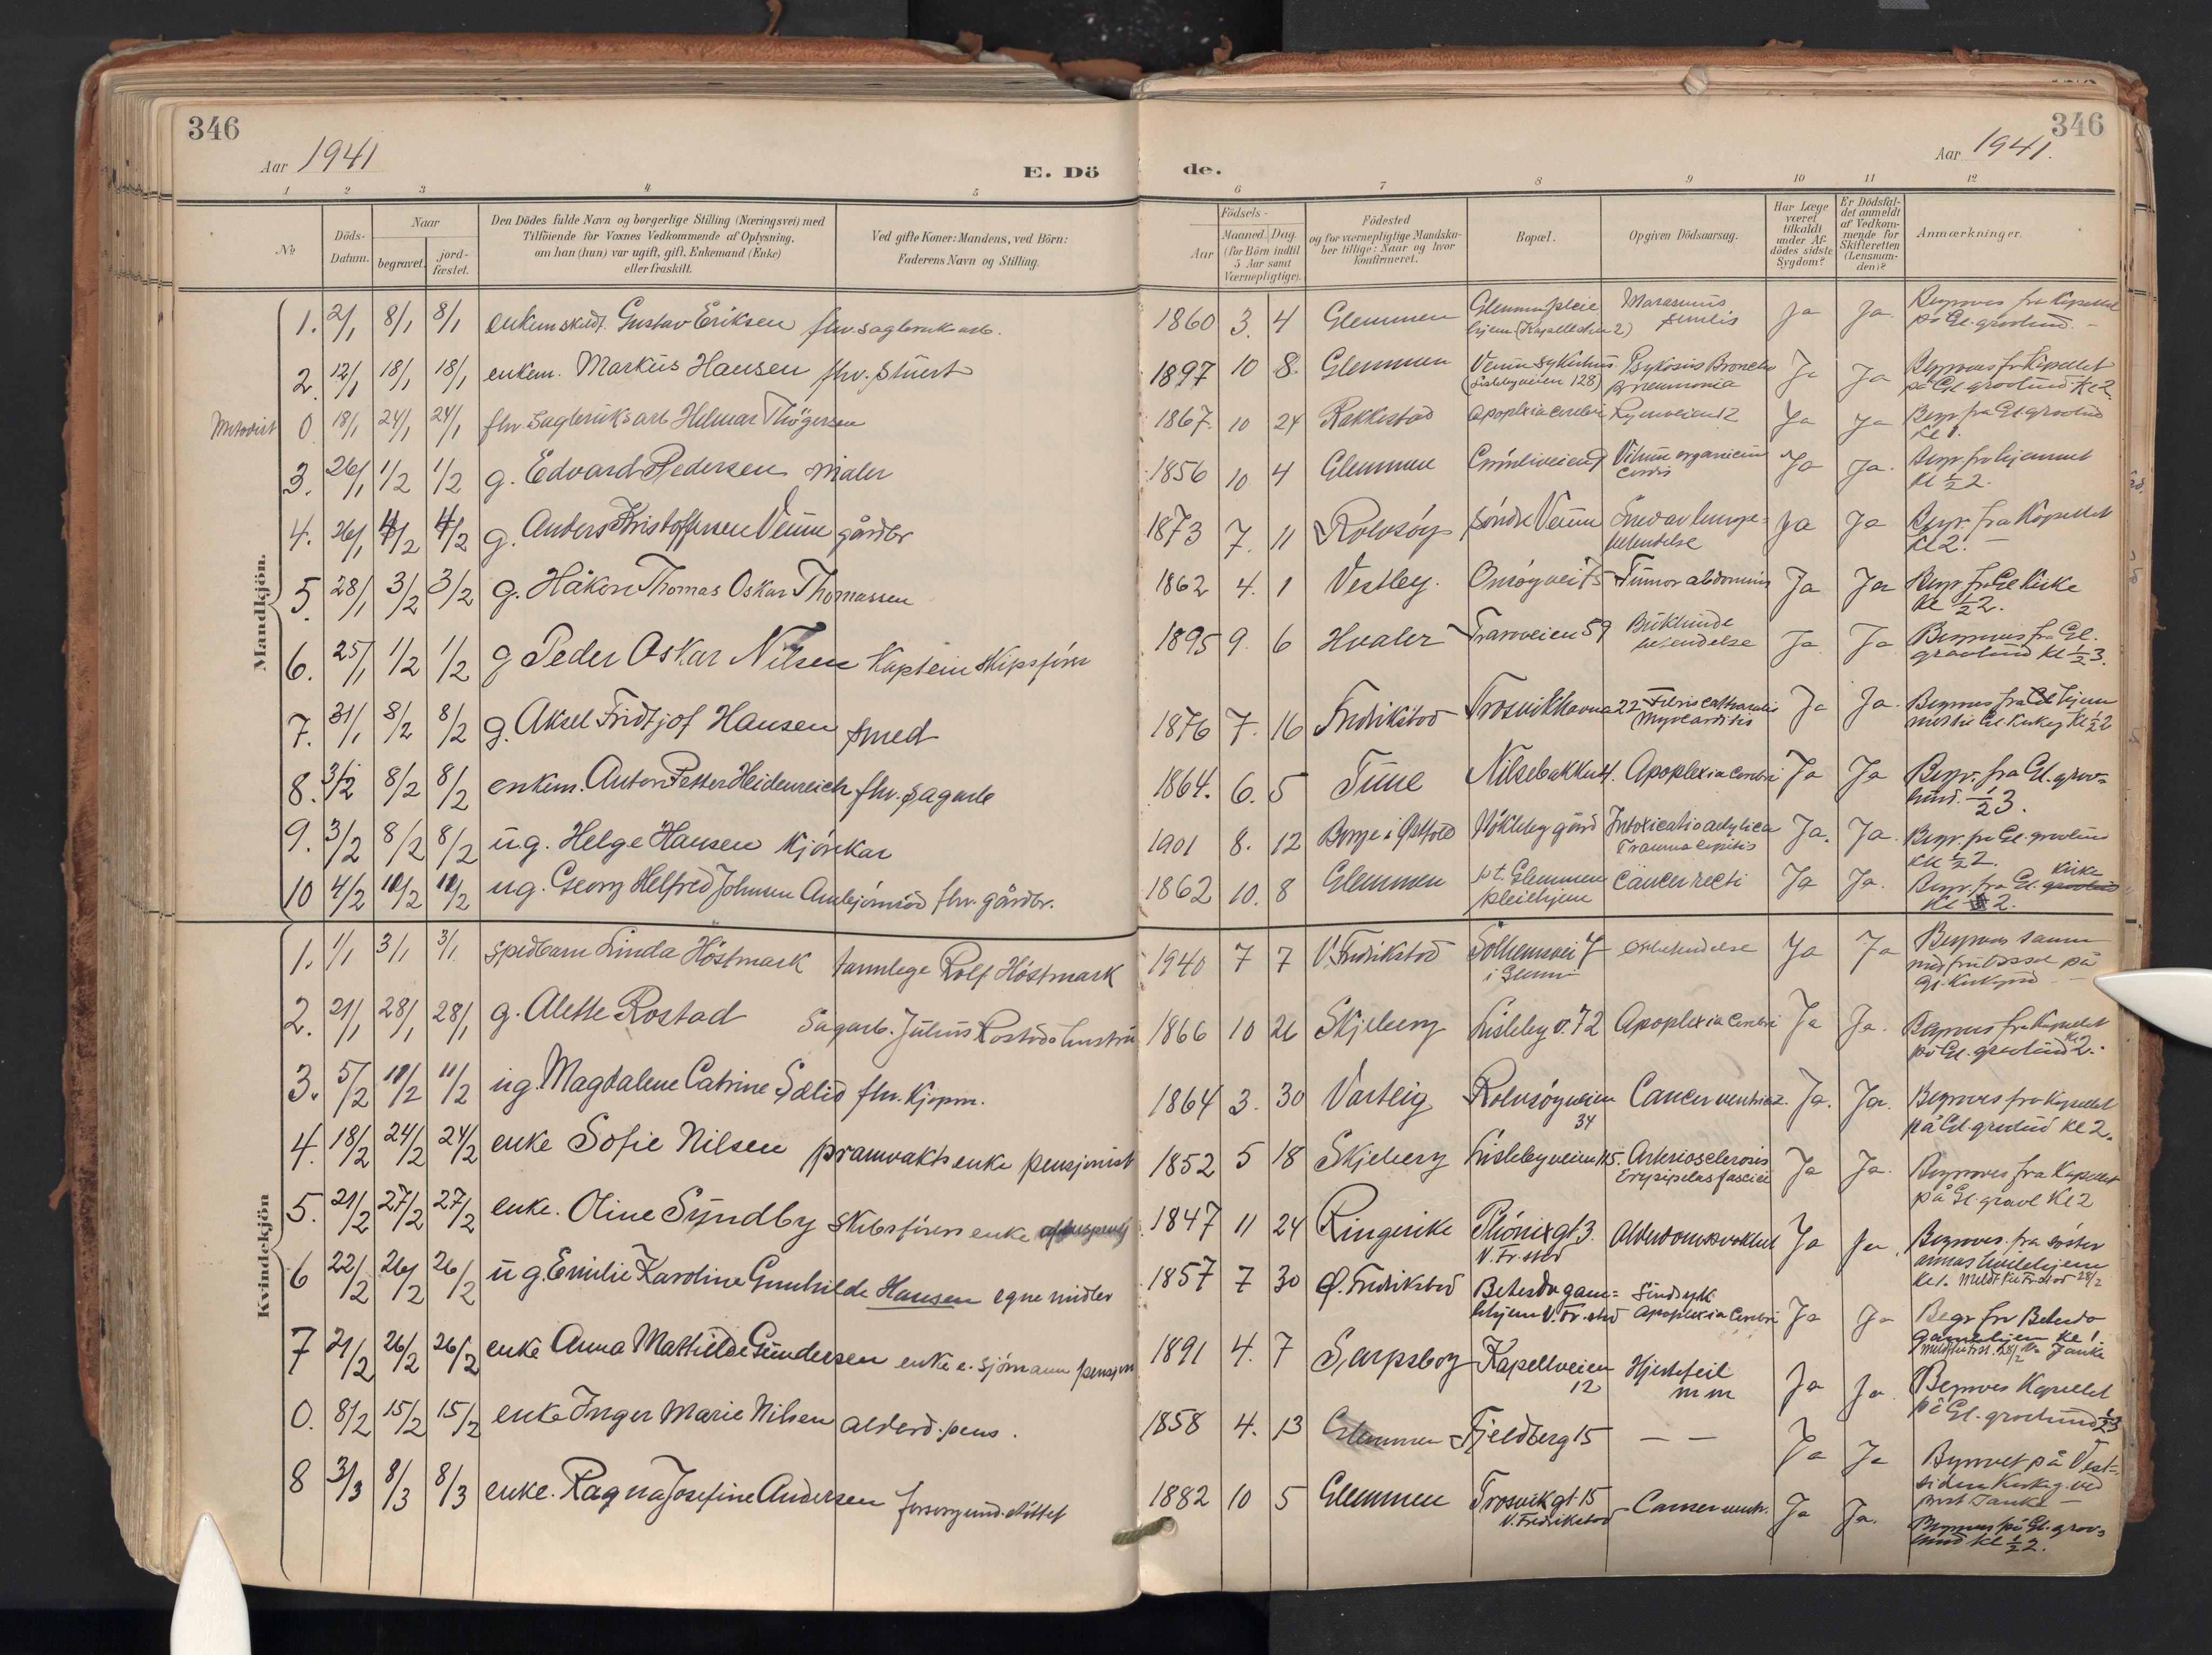 346
Aar 1941
E. Dö
1 2 3 4 5
№
Döds-
Datum.
Naar
begravet.
jord-
fæstet.
Den Dödes fulde Navn og borgerlige Stilling (Næringsvei) med
Tilföiende for Voxnes Vedkommende af Oplysning,
om han (hun) var ugift, gift, Enkemand (Enke)
eller fraskilt.
Ved gifte Koner: Mandens, ved Börn:
Faderens Navn og Stilling.
Mandkjön.
1. 2/1 8/1 8/1 Gustav Eriksen fhv. sagbruksarb.
2. 12/1 18/1 18/1 enkem. Markus Hansen fhv. Stuert
Metodist 0 18/1 24/1 24/1 fhv. sagbruksarb Hilmar Thögersen
3. 26/1 1/2 1/2 g. Edvard Pedersen Maler
4. 26/1 4/2 4/2 g. Anders Kristoffersen Veum gårdbr
5 28/1 3/2 3/2 g. Håkon Thomas Oskar Thomassen
6. 25/1 1/2 1/2 g Peder Oskar Nilsen Kaptein Skipsförer
7. 31/1 8/2 8/2 g. Aksel Fridtjof Hansen smed
8. 3/2 8/2 8/2 enkem. Anton Petter Heidenreich fhv. sagarb
9. 3/2 8/2 8/2 ug. Helge Hansen Kjörekar
10 4/2 ug. Georg Helfred Johnsen fhv. gårdbr.
Kvindekjön
1. 1/1 3/1 3/1 spedbarn Linda Höstmark tannlege Rolf Höstmark
2. 21/1 28/1 28/1 g. Alette Rostad Sagarb. Julius Rostads hustru
3. 5/2 11/2 11/2 ug. Magdalene Catrine Sælid fhv. Kjøpm.
4. 18/2 24/2 24/2 enke Sofie Nilsen pramvakts enke pensjonist
5. 21/2 27/2 27/2 enke. Oline Syndby Skibsförers enke
6 22/2 26/2 26/2 ug. Emilie Karoline Gunhilde Hansen egne midler
7 21/2 26/2 26/2 enke Anna Mathilde Gundersen enke e. sjömann pensjon
0. 8/2 15/2 15/2 enke Inger Marie Nilsen alderd. pens.
8 3/3 8/3 8/3 enke. Ragna Josefine Andersen
346
Aar 1941.
de.
6 7 8 9 10 11 12
Födsels-
Aar
Maaned. Dag.
(for Börn indtil
5 Aar samt
Værnepligtige).
Födested
og for værnepligtige Mandska-
ber tillige: Naar og hvor
konfirmeret.
Bopæl.
Opgiven Dödsaarsag.
Har Læge
været
tilkaldt
under Af-
dödes sidste
Sygdom?
Er Dödsfal-
det anmeldt
af Vedkom-
mende for
Skifteretten
(Lensman-
den)?
Anmærkninger.
1860 3. 4 Glemmen Glemmen pleie Marasmus Ja Ja. Begraves fra Kapellet
hjem senilis på Gl. gravlund. –
1897 10 8. Glemmen Veum sykehus Ja Ja Begraves fr Kapellet
(Lislebyveien 128) Pneumonia på Gl. gravlund Kl 2
1867. 10 24 Rakkestad Apoplexia cerebri Ja Ja Begr fra Gl. gravlund
Kl 1.
1856 10 4 Glemmen Vitium organicum Ja Ja. Begr. fra hjemmet
cordis Kl ½ 2.
1873 7. 11 Rolvsöy Söndre Veum Ja Ja Begr. fra Kapellet
Kl 2. –
1862 4. 1 Vestby. Onsöyvei 75 Tumor abdominis Ja Ja Begr. fr Gl Kirke
Kl ½ 2.
1895 9. 6 Hvaler Traraveien 59 Ja Ja Begraves fra Gl.
gravlund Kl ½ 3.
1876 7. 16 Fredrikstad Trosvikhavna 22 Ja Ja. Begraves fra hjem
Myocarditis
1864. 6. 5 Tune Apoplexia cerebri Ja Ja Begr. fra Gl. grav-
lund. ½ 3.
1901 8. 12 Borge i Østfold Intoxicatio Ja. Ja. Begr. fra Gl. gravlund
Kl ½ 2.
1862 10. 8 Glemmen pt. Glemmen Cancer recti Ja Ja. Begr. fra Gl. kirke
pleiehjem
1940 7 7 V. Fredrikstad Solhemsvei 7 Ja Ja
1866 10 26 Skjeberg Lisleby v. 72 Apoplexia cerebri Ja Ja. Begraves fra Kapellet
på Gl. gravlund Kl 2.
1864 3. 30 Varteig Rolvsöyveien Cancer ventric. Ja. Ja. Begraves fra Kapellet
34 på Gl. gravlund Kl 2.
1852 5 18 Skjeberg Lislebyveien 115. Arteriosclerosis Ja Ja. Begraves fra Kapellet
Erysipelas faciei på Gl. gravl Kl 2
1847 11 24 Ringerike Phönixgt 3. Ja Ja. Begraves. fra söster
V. Fr.stad Annas hvilehjem
1857 7 30 Ø. Fredrikstad Betesda gam= Sindsyk
lehjem V. Fr.stad Apoplexia cerebri Ja Ja Begr fra Betesda
gamlehjem Kl 1.
1891 4. 7 Sarpsborg Kapellveien Hjertefeil Ja Ja Begraves Kapellet
12 m m på Gl. gravlund ½ 3
1858 4. 13 Glemmen Fjeldberg 15 – – Ja Ja Begravet på Vest=
siden Kirkeg. ved
prest Janke –
1882 10 5 Glemmen Trosvikgt 15 Cancer ventr. Ja Ja. Begraves på Gl. grav=
V. Fredrikstad lund Kl ½ 2.